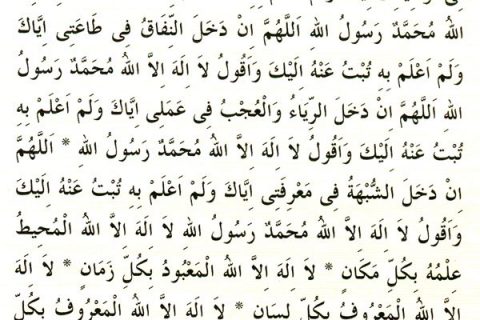 اللهُ مُحَمَّدٌ رَسُولُ اللهِ اَللّٰهُمَّ اِنْ دَخَلَ النِّفَاقُ فِى طَاعَتِى اِيَّاكَ
وَلَمْ اَعْلَمْ بِهِ تُبْتُ عَنْهُ اِلَيْكَ وَاَقُولُ لاَ اِلٰهَ اِلاَّ اللهُ مُحَمَّدٌ رَسُولُ
اللهِ اَللّٰهُمَّ اِنْ دَخَلَ الرِّيَاءُ وَالْعُجْبُ فِى عَمَلِى اِيَّاكَ وَلَمْ اَعْلَمْ بِهِ
تُبْتُ عَنْهُ اِلَيْكَ وَاَقُولُ لاَ اِلٰهَ اِلاَّ اللهُ مُحَمَّدٌ رَسُولُ اللهِ * اَللّٰهُمَّ
اِنْ دَخَلَ الشُّبْهَةُ فِى مَعْرِفَتِى اِيَّاكَ وَلَمْ اَعْلَمْ بِهِ تُبْتُ عَنْهُ اِلَيْكَ
وَاَقُولُ لاَ اِلٰهَ اِلاَّ اللهُ مُحَمَّدٌ رَسُولُ اللهِ لاَ اِلٰهَ اِلاَّ اللهُ الْمُحِيطُ
عِلْمُهُ بِكُلِّ مَكَانٍ * لاَ اِلٰهَ اِلاَّ اللهُ الْمَعْبُودُ بِكُلِّ زَمَانٍ * لاَ اِلٰهَ
اِلاَّ اللهُ الْمَعْرُوفُ بِكُلِّ لِسَانٍ * لاَ اِلٰهَ اِلاَّ اللهُ الْمَعْرُوفُ بِكُلِّ